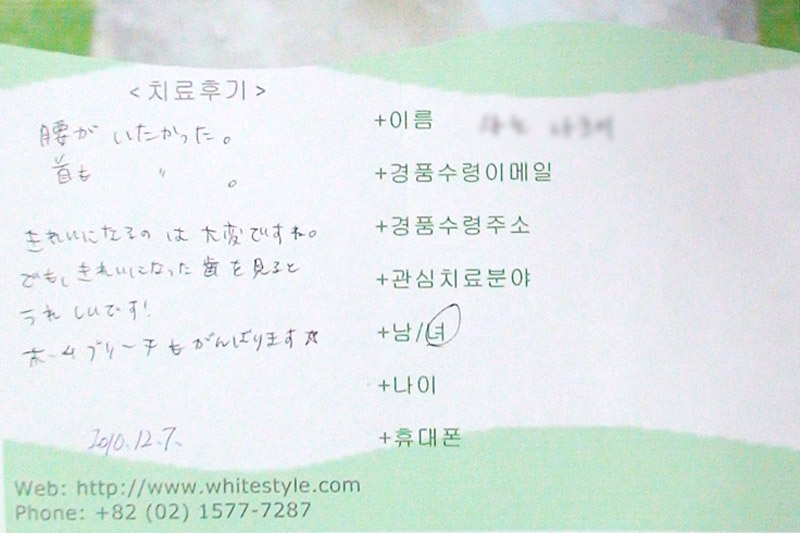 <치료후기>
腰がいたかった。
首も 〃 。
きれいになるのは大変ですね。
でも、きれいになった歯を見ると
うれしいです!
ホームブリーチもがんばります☆
2010.12.7.
+이름
+경품수령이메일
+경품수령주소
+관심치료분야
+남/녀
+나이
+휴대폰
Web: http://www.whitestyle.com
Phone: +82 (02) 1577-7287